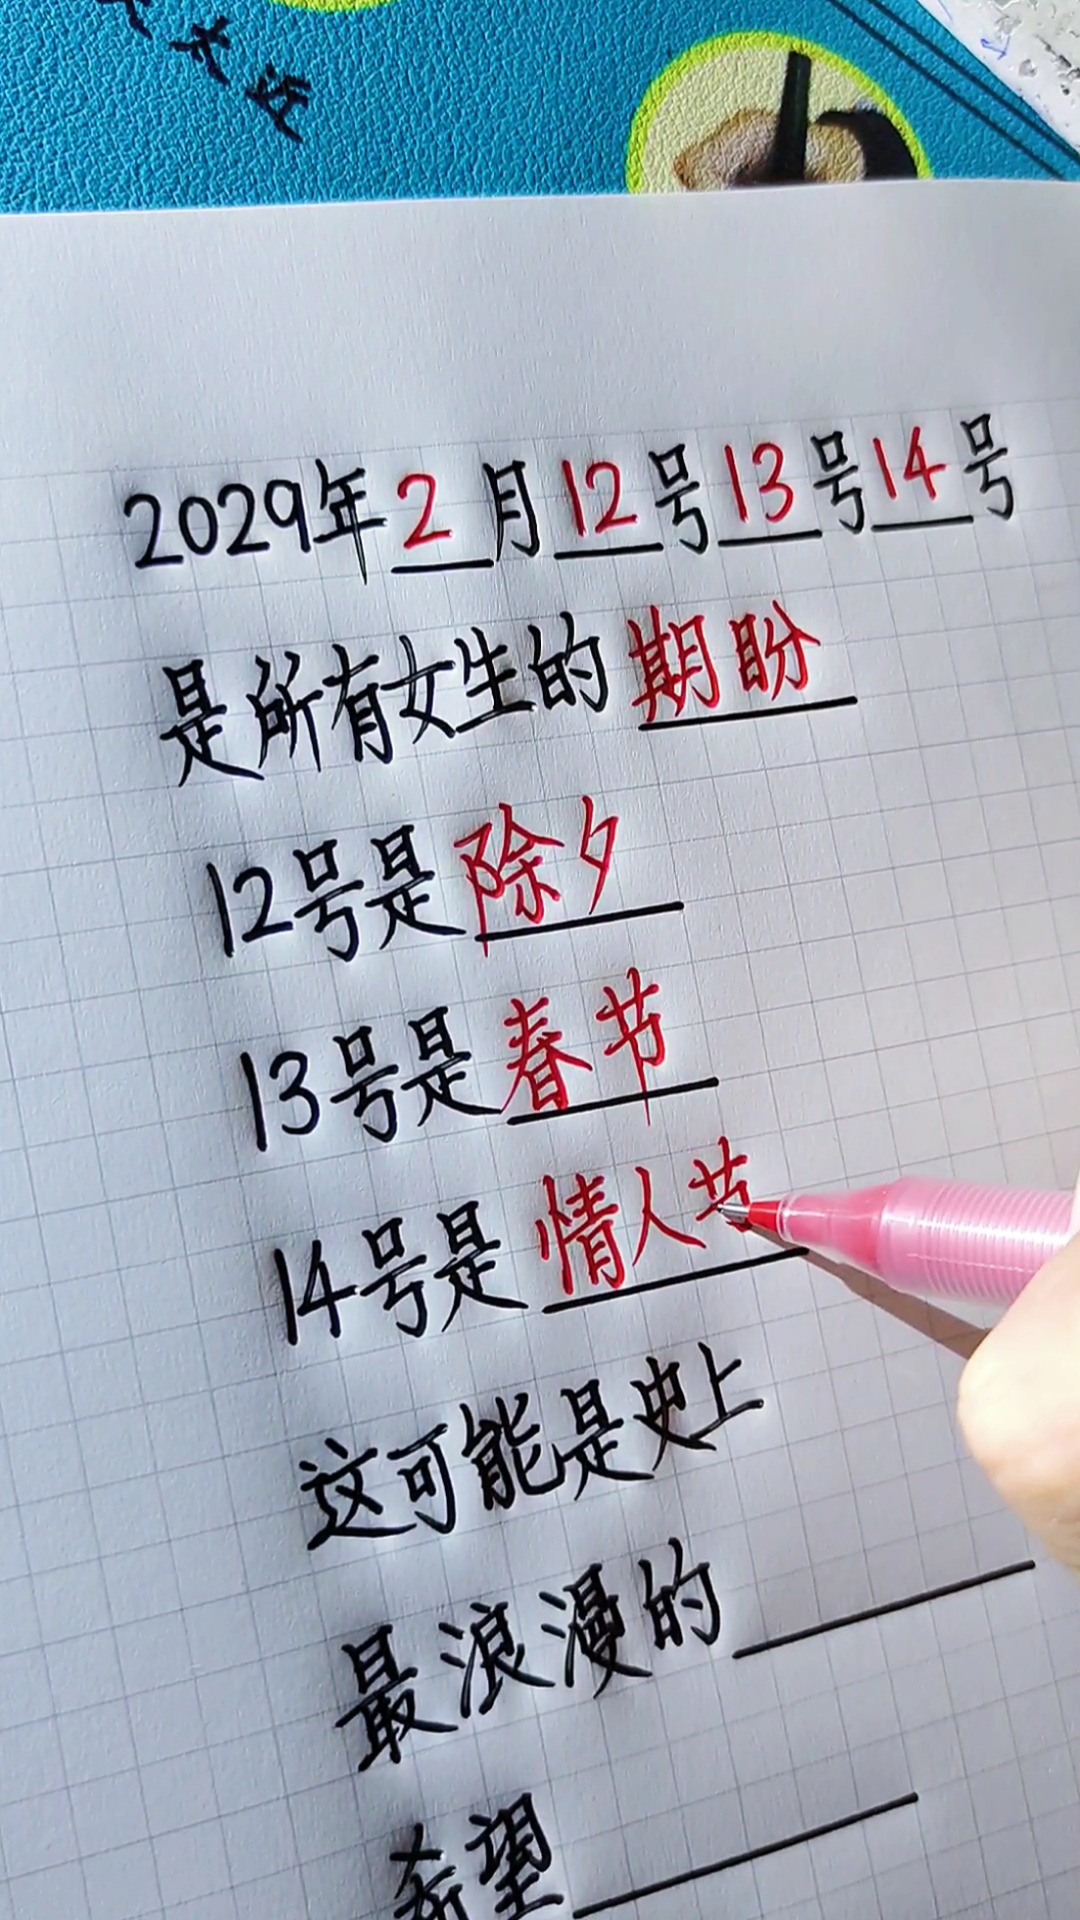 2029年2月12号13号14号
是所有女生的期盼
12号是除夕
13号是春节
14号是情人节
这可能是史上
最浪漫的
希望